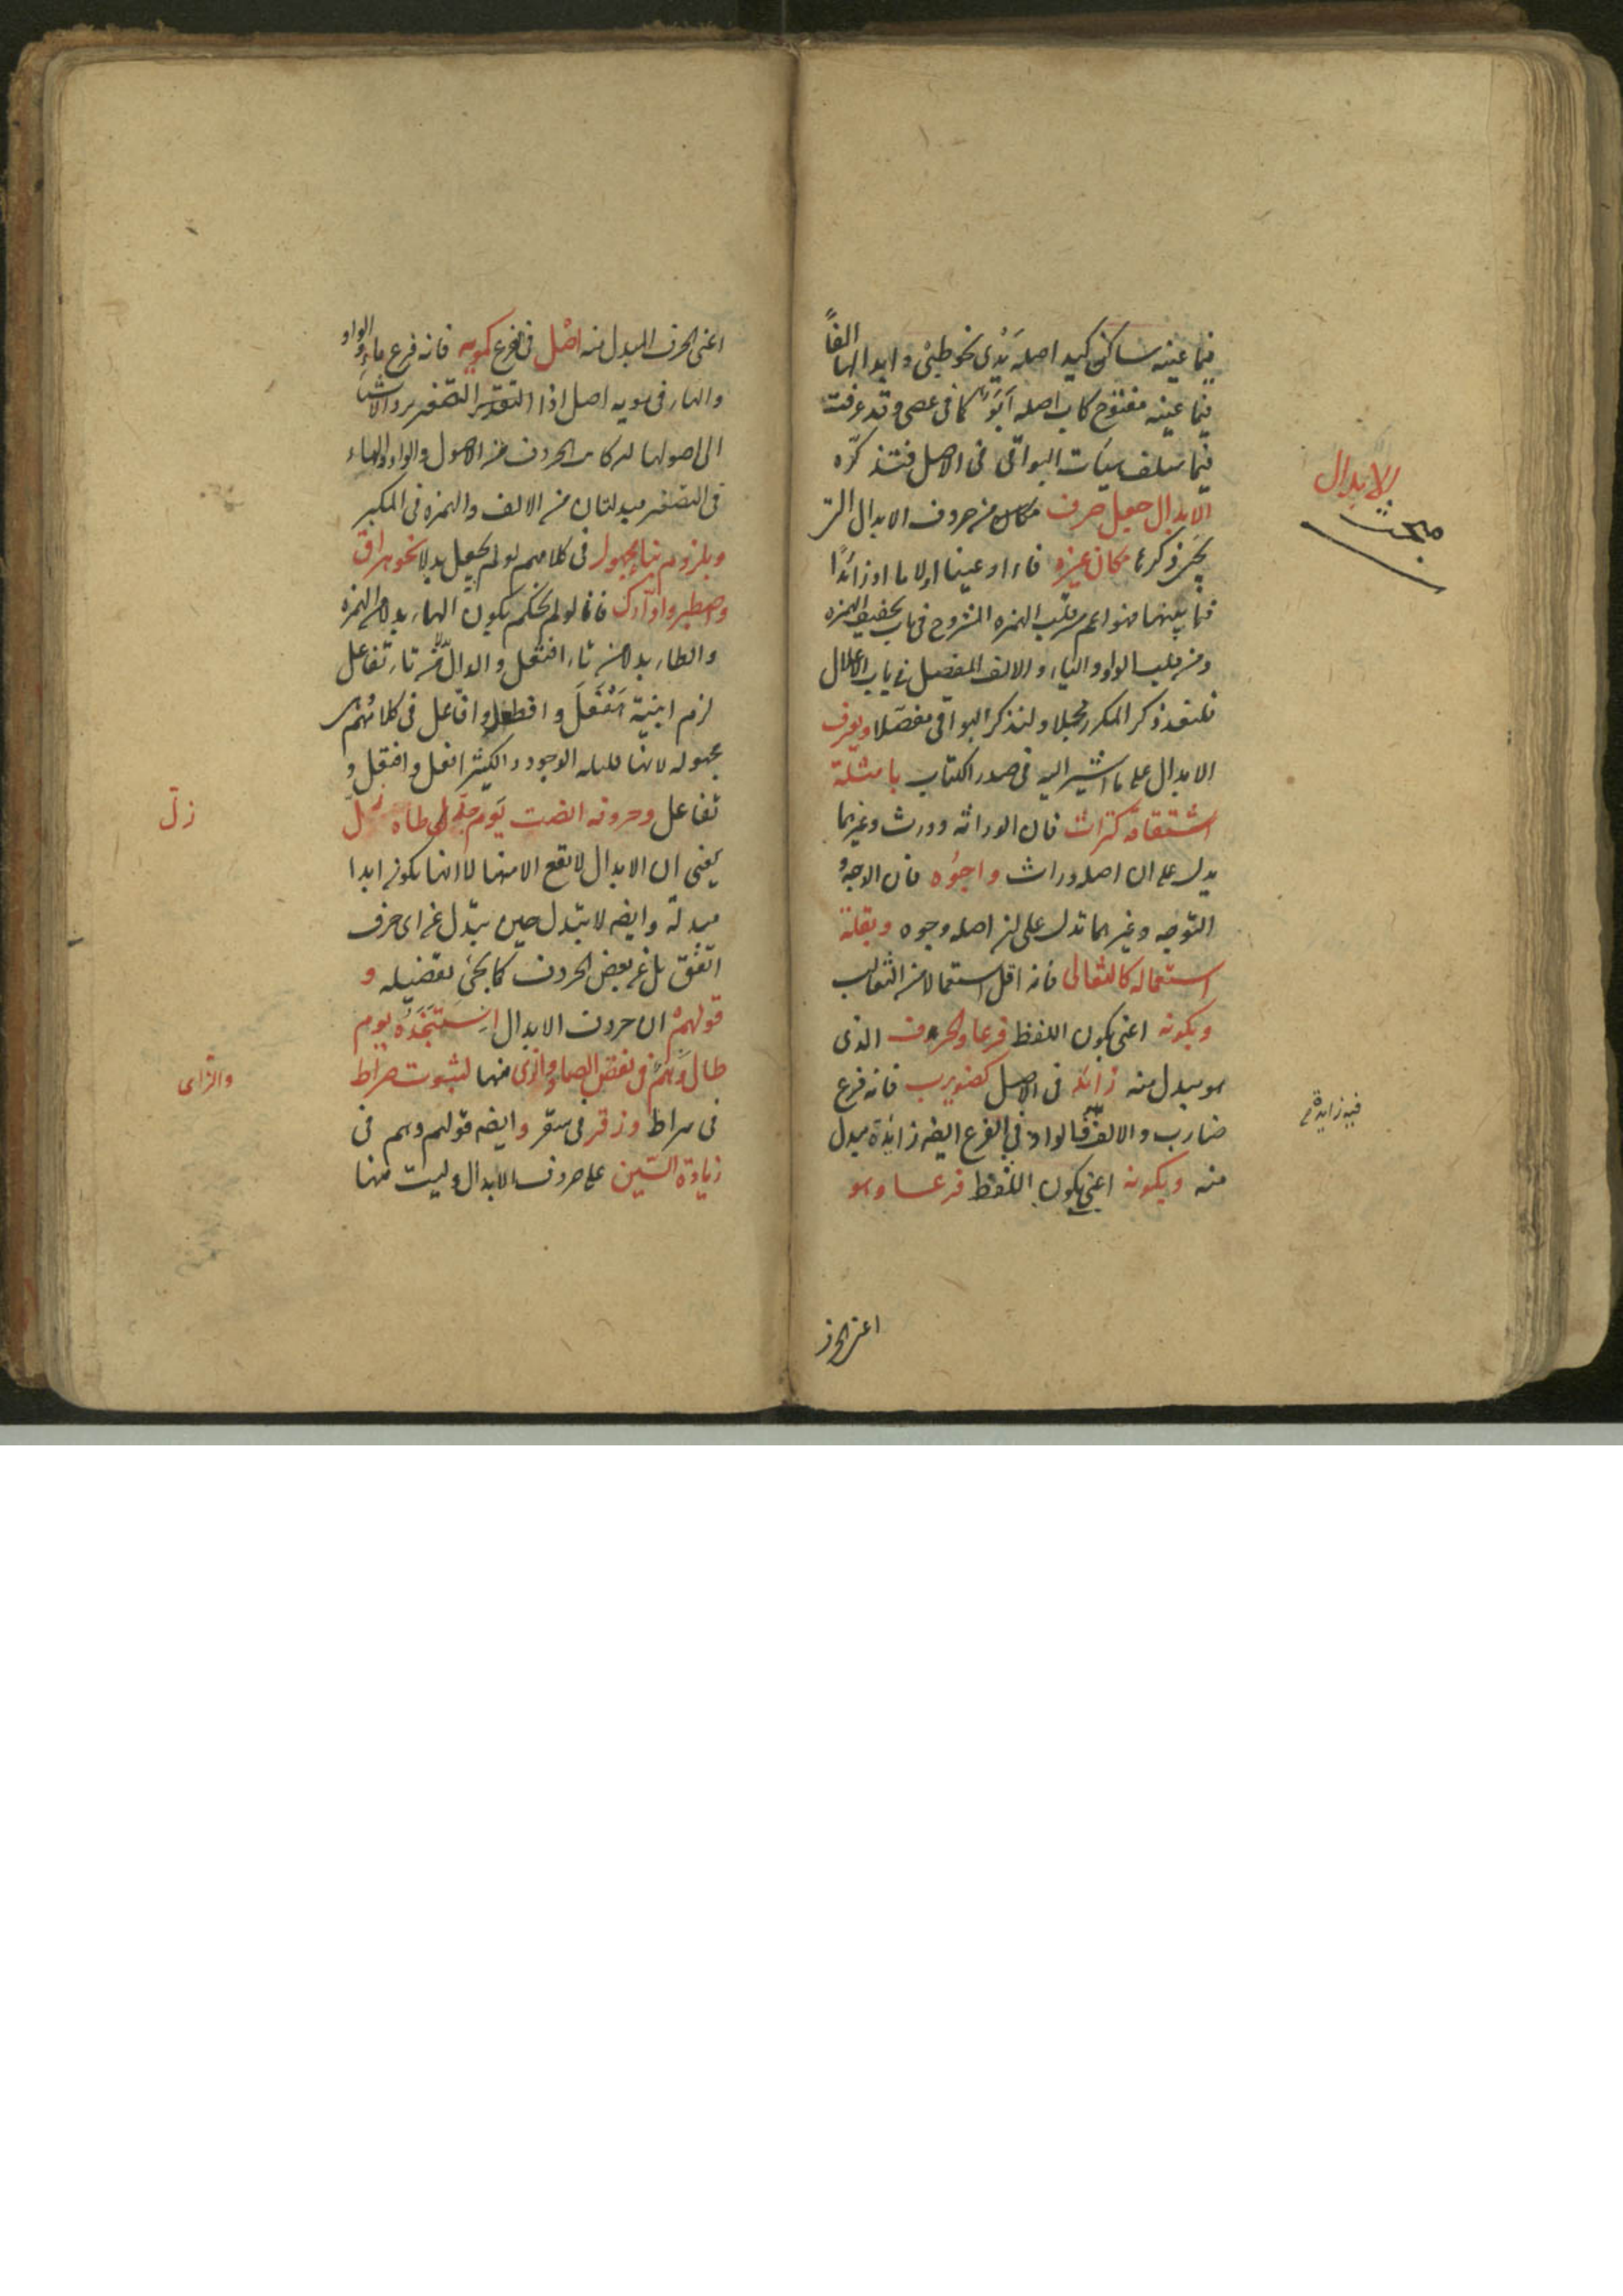 فيما عينه ساكن كيد اصله يَدْيٌ نحو ظبي وابدالها الفاً
فيما عينه مفتوح كاب اصله اَبَوٌ كما في عصى وقد عرفت
فيما سلف سيات البواقي في الاصل فتذكره
الابدال جعل حرف من حروف الابدال التي
يجئ ذكرها مكان غيره فاء او عينا او لاما او زائدًا
فما بينهما فهو اعم من قلب الهمزه المشروح في باب تخفيف الهمزه
ومن قلب الواو والياء والالف المفصل في باب الاعلال
فلنعد ذكر المكرر مجملا ولنذكر البواقي مفصلا ويعرف
الابدال على ما اشير اليه في صدر الكتاب بامثلة
اشتقاقه كتراث فان الوراثه وورث وغيرهما
يدل على ان اصله وراث واجوُه فان الوجه و
التوجه وغيرهما تدل على ان اصله وجوه وبقلة
استعماله كالثعالى فانه اقل استعمالا من الثعالب
وبكونه اعنى بكون اللفظ فرعا والحرف الذى
هو مبدل منه زائد فى الاصل كضويرب فانه فرع
ضارب والالف فيه زائدة فالواو في الفرع ايضه زائدة مبدل
منه وبكونه اعنى بكون اللفظ فرعا وهو
الابدال
مبحث
فيه زايدة
اعنى الحرف
اعنى الحرف المبدل منه اصل فى الفرع كمويه فانه فرع ماء والواو
والهاء فى مويه اصل اذا التصغير يرد الاشياء
الى اصولها لو كانت الحروف من الاصول والواو والهاء
فى التصغير مبدلتان من الالف والهمزه فى المكبر
وبلزوم بناء مجهول فى كلامهم لو لم يجعل بدلا نحو هراق
واصطبر وادّارك فانا لو لم نحكم بكون الهاء بدلا من الهمزه
والطاء بدلا من تاء افتعل والدال من تاء تفاعل
لزم ابنية هَفْعَلَ وافطعل وافّاعل فى كلامهم وهى
مجهوله لانها قليله الوجود والكثير افعل وافتعل و
تفاعل وحروفه انصت يَوم جَدّ طاه زلّ
يعنى ان الابدال لا يقع الا منها لا انها يكون ابدا
مبدلة وايضه لا يتبدل حين يتبدل عن اى حرف
اتفق بل عن بعض الحروف كما يجئ تفصيله و
قولهم ان حروف الابدال اِسْتَنْجَدَه يوم
طال وهمٌ فى نقص الصاد والزاى منها لثبوت صراط
فى سراط وزقر فى سقر وايضه قولهم وهم فى
زيادة السّين على حروف الابدال وليست منها
زلّ
والزاى